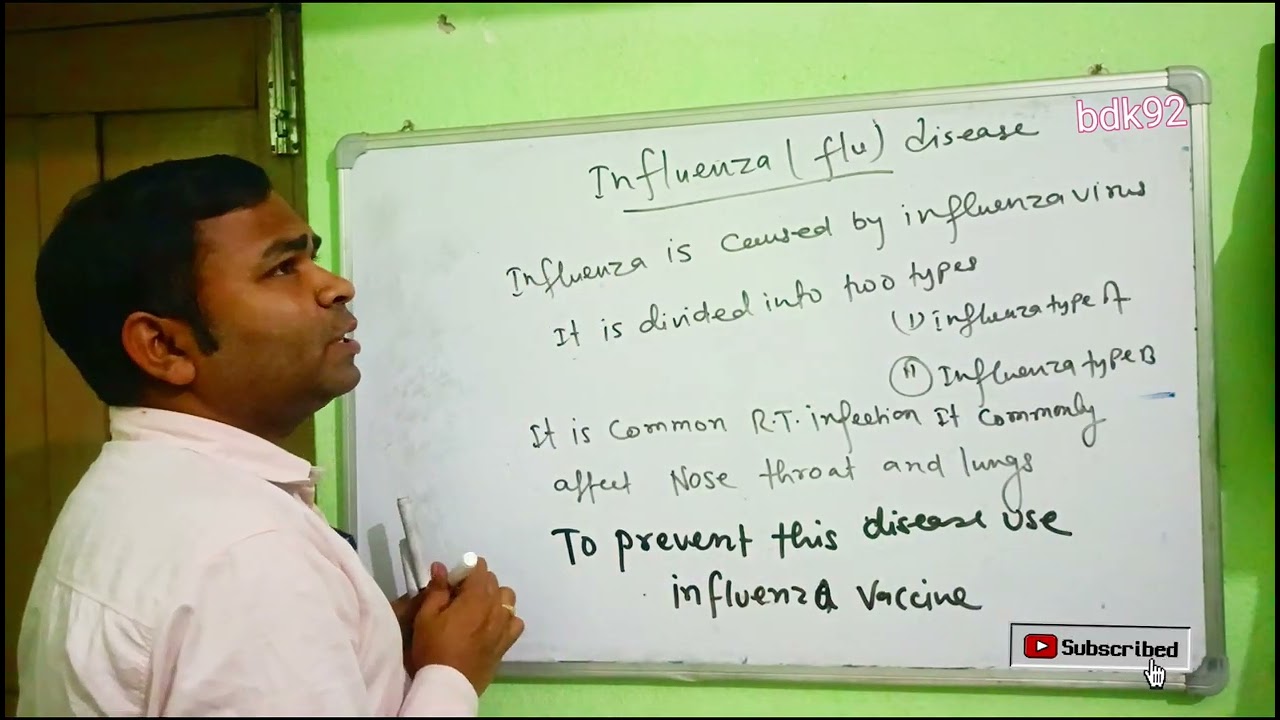 bdk92
Influenza (flu) disease
Influenza is caused by influenza virus
It is divided into two types
(I) influenza type A
(II) Influenza type B
It is common R.T. infection It commonly
affect Nose throat and lungs
To prevent this disease use
influenza vaccine
Subscribed